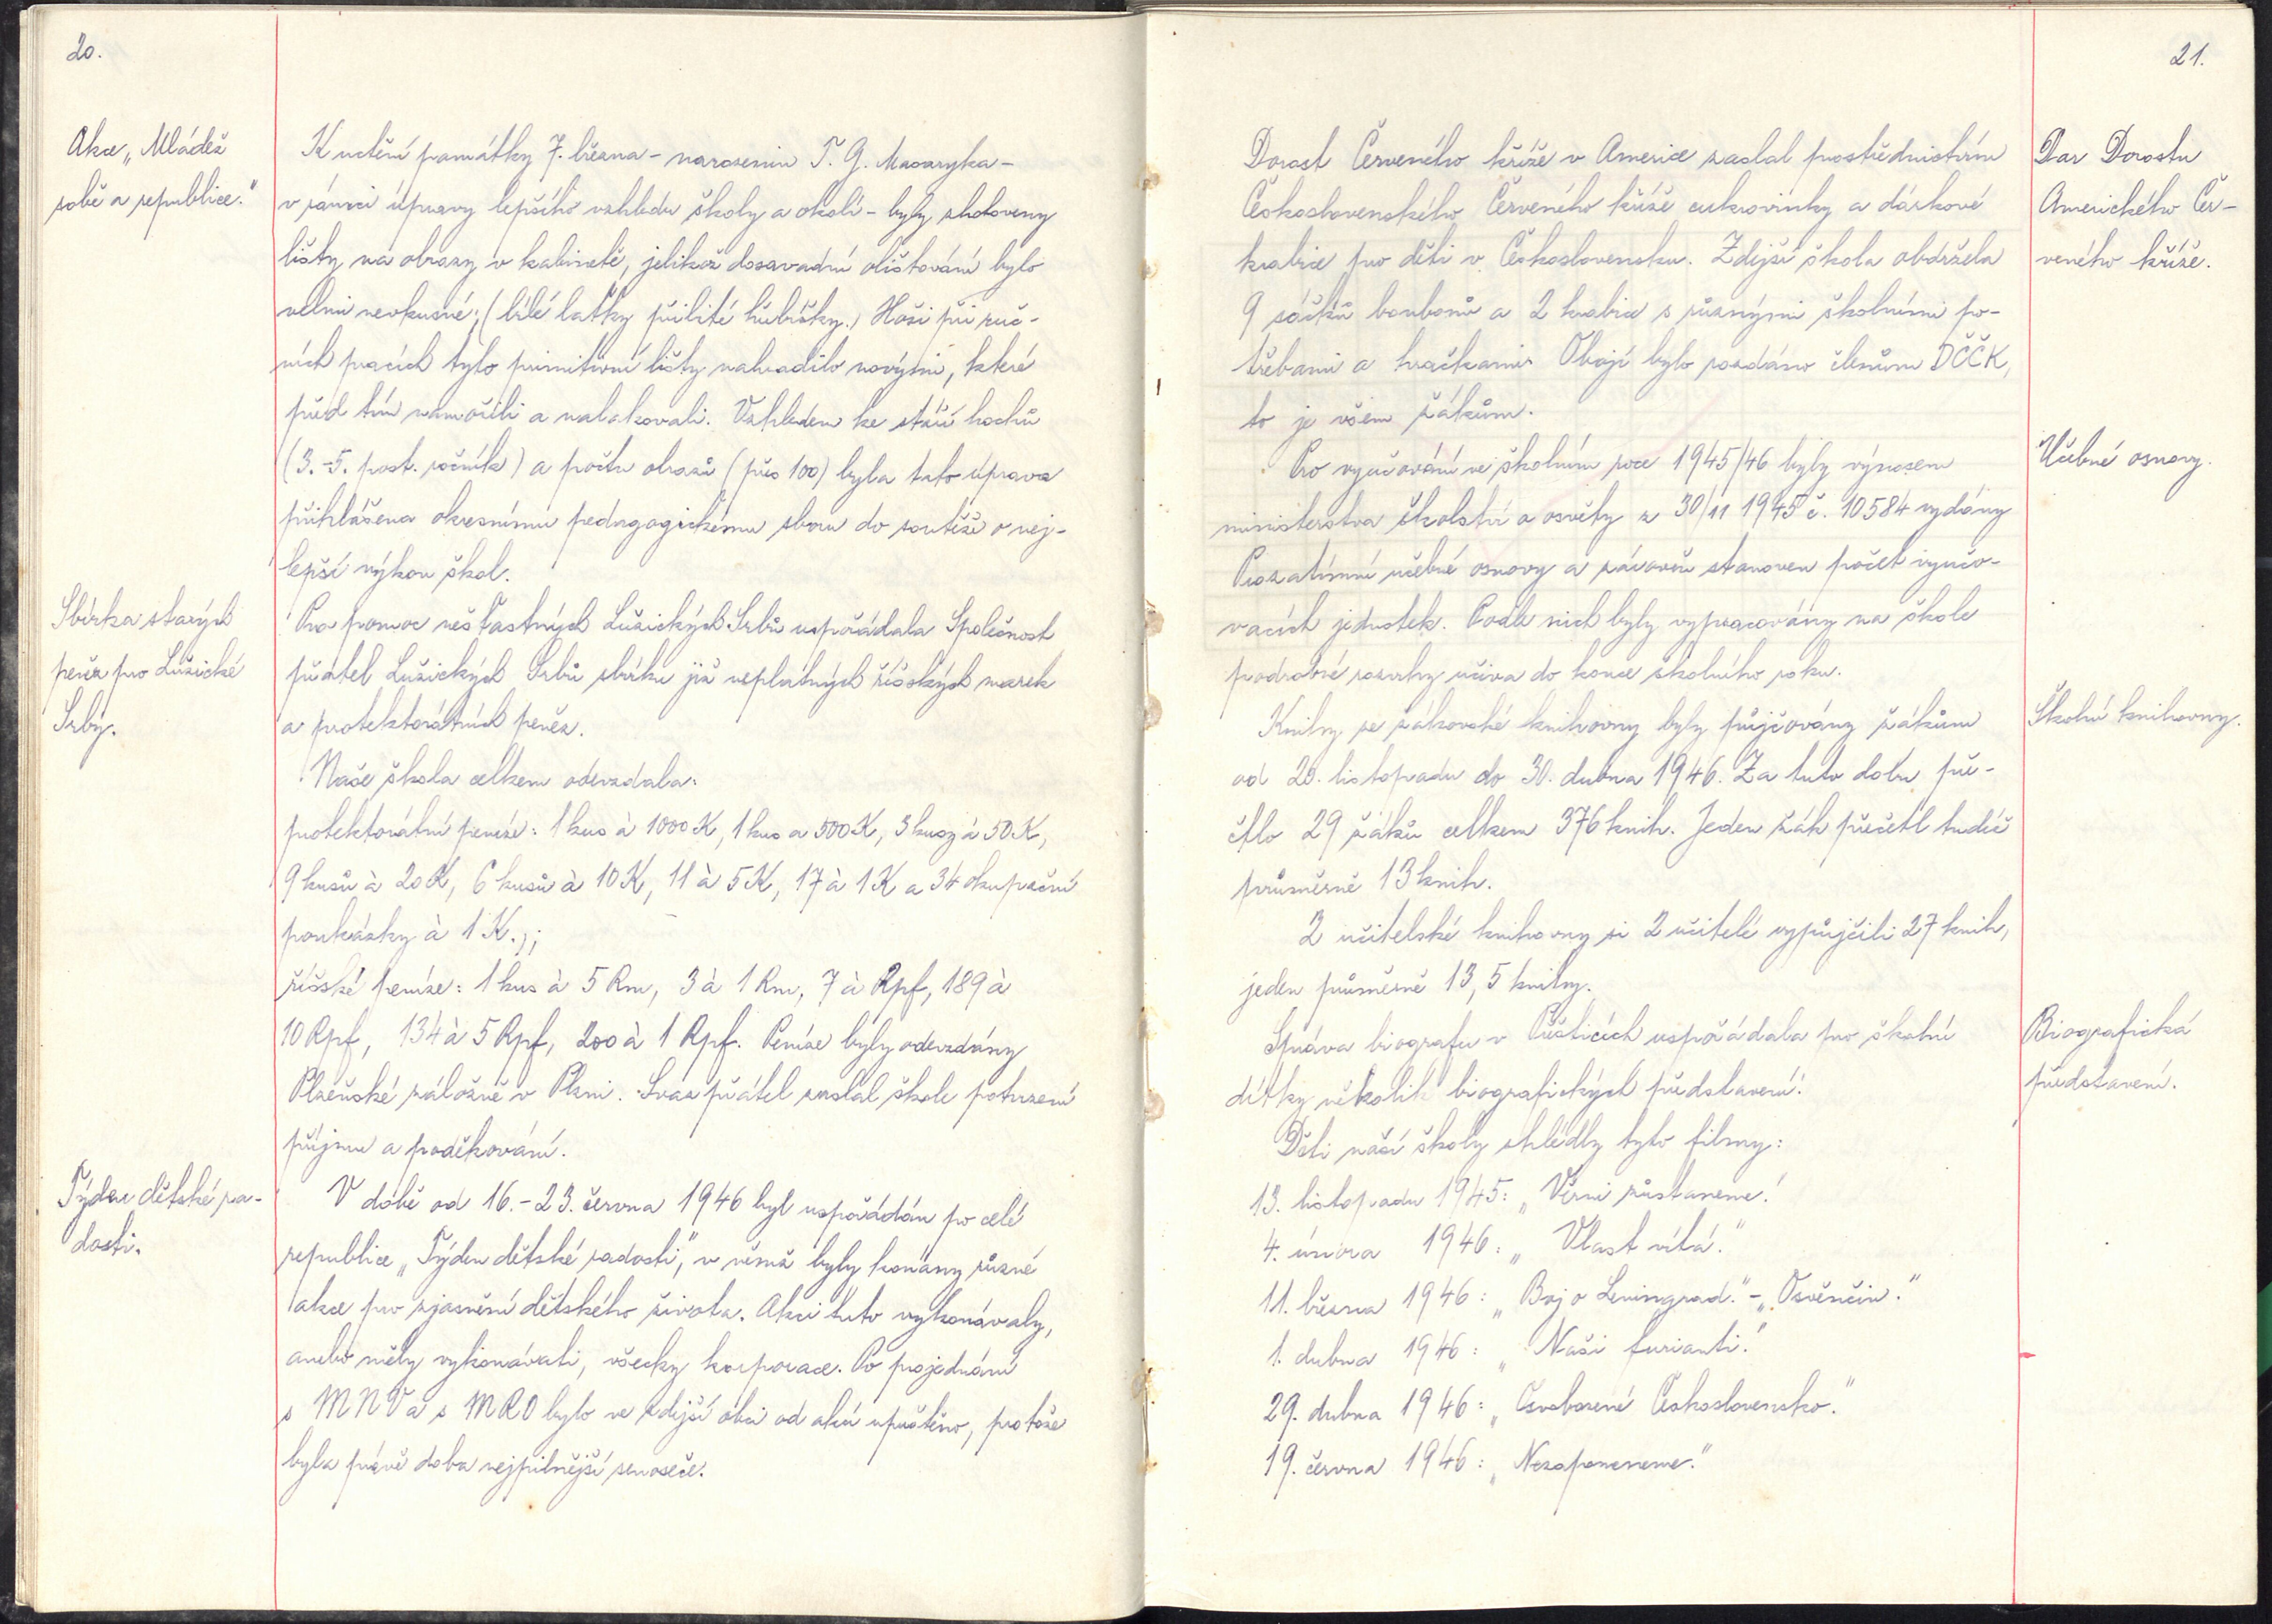 20.
Akce „Mládež
sobě a republice."
K uctění památky 7. března - narozenin T. G. Masaryka -
v rámci úpravy lepšího vzhledu školy a okolí - byly zhotoveny
lišty na obrazy v kabinetě, jelikož dosavadní olištování bylo
velmi nevkusné; (bílé laťky přibité hřebíčky.) Hoši při ruč-
ních pracích tyto primitivní lišty nahradilo novými, které
před tím namořili a nalakovali. Vzhledem ke stáří hochů
(3.-5. post. ročník) a počtu obrazů (přes 100) byla tato úprava
přihlášena okresnímu pedagogickému sboru do soutěže o nej-
lepší výkon škol.
Sbírka starých
peněz pro Lužické
Srby.
Pro pomoc nešťastných Lužických Srbů uspořádala Společnost
přátel Lužických Srbů sbírku již neplatných říšských marek
a protektorátních peněz.
Naše škola celkem odevzdala:
protektorátní peníze: 1 kus à 1000 K, 1 kus a 500 K, 3 kusy à 50 K,
9 kusů à 20 K, 6 kusů à 10 K, 11 à 5 K, 17 à 1 K a 34 okupační
poukázky à 1 K.);
říšské peníze: 1 kus à 5 Rm, 3 à 1 Rm, 7 à Rpf, 189 à
10 Rpf, 134 à 5 Rpf, 200 à 1 Rpf. Peníze byly odevzdány
Plzeňské záložně v Plzni. Svaz přátel zaslal škole potvrzení
příjmu a poděkování.
Týden dětské ra-
dosti.
V době od 16.-23. června 1946 byl uspořádán po celé
republice „Týden dětské radosti", v němž byly konány různé
akce pro zjasnění dětského života. Akci tuto vykonávaly,
anebo měly vykonávati, všecky korporace. Po projednání
s MNV a s MRO bylo ve zdejší obci od akcí upuštěno, protože
byla právě doba nejpilnější senoseče.
21.
Dorost Červeného kříže v Americe zaslal prostřednictvím
Československého Červeného kříže cukrovinky a dárkové
krabice pro děti v Československu. Zdejší škola obdržela
9 sáčků bonbonů a 2 krabice s různými školními po-
třebami a hračkami. Obojí bylo rozdáno členům DČČK,
to je všem žákům.
Dar Dorostu
Amerického Čer-
veného kříže.
Pro vyučování ve školním roce 1945/46 byly výnosem
ministerstva školství a osvěty z 30/11 1945 č. 10584 vydány
Prozatímní učebné osnovy a zároveň stanoven počet vyučo-
vacích jednotek. Podle nich byly vypracovány na škole
podrobné rozvrhy učiva do konce školního roku.
Učebné osnovy.
Knihy ze žákovské knihovny byly půjčovány žákům
od 20. listopadu do 30. dubna 1946. Za tuto dobu pře-
četlo 29 žáků celkem 376 knih. Jeden žák přečetl tudíž
průměrně 13 knih.
Školní knihovny.
Z učitelské knihovny si 2 učitelé vypůjčili 27 knih,
jeden průměrně 13,5 knihy.
Správa biografu v Přešticích uspořádala pro školní
dítky několik biografických představení.
Biografická
představení.
Děti naší školy shlédly tyto filmy:
13. listopadu 1945: „Věrni zůstaneme!
4. února 1946: „Vlast vítá."
11. března 1946: „Boj o Leningrad." - „Osvěnčin."
1. dubna 1946: „Naši furianti."
29. dubna 1946: „Osvobozené Československo."
19. června 1946: „Nezapomeneme."